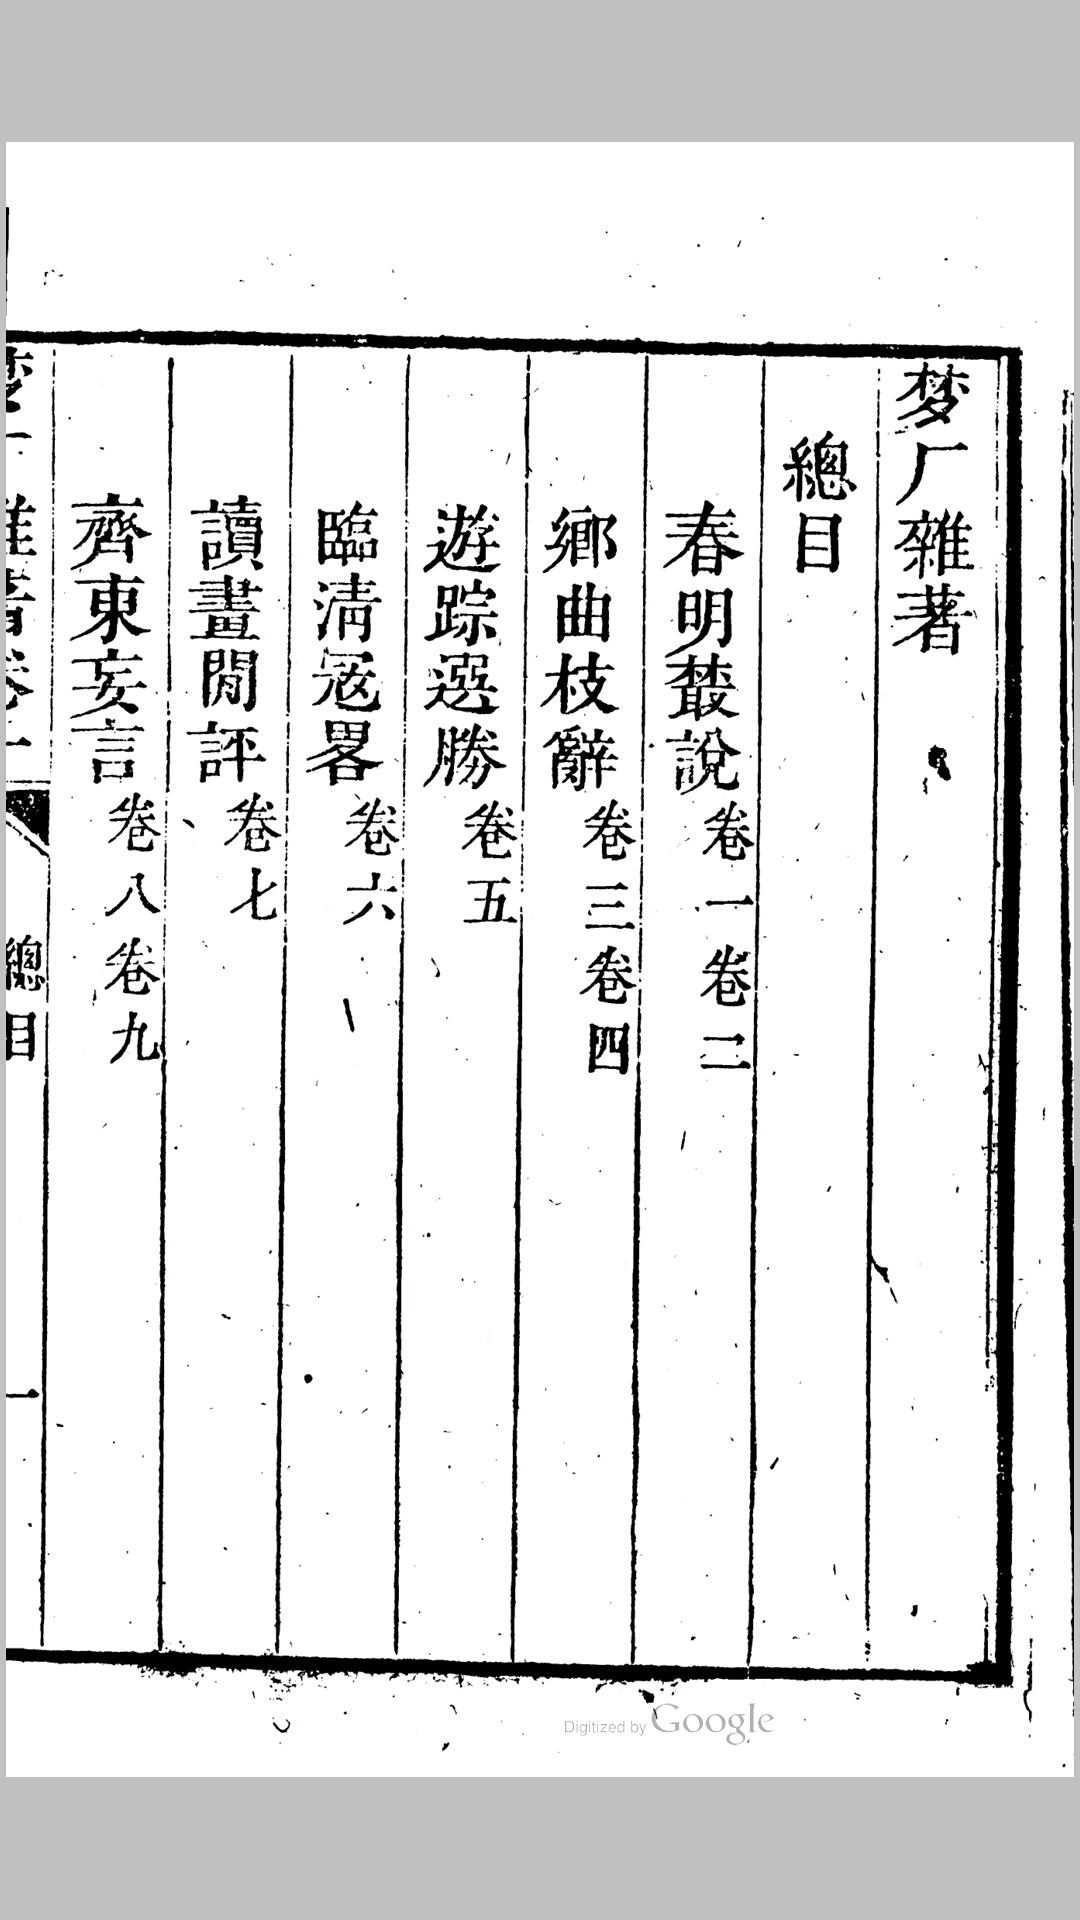 梦厂雜著
總目
春明藂說卷一卷二
鄉曲枝辭卷三卷四
遊踪選勝卷五
臨清寇畧卷六
讀畫閒評卷七
齊東妄言卷八卷九
梦厂雜著卷一 總目 一
Digitized by Google